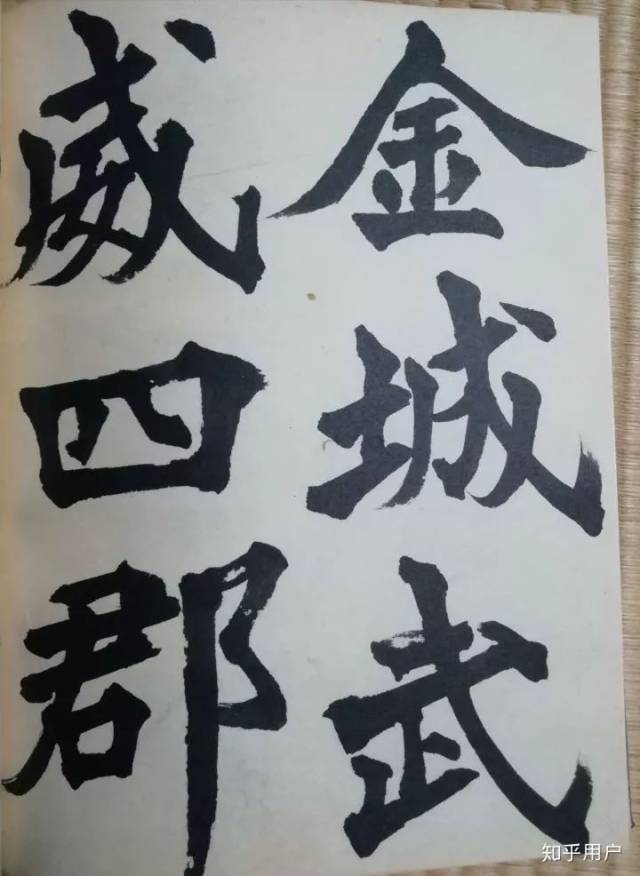 金城武
威四郡
知乎用户